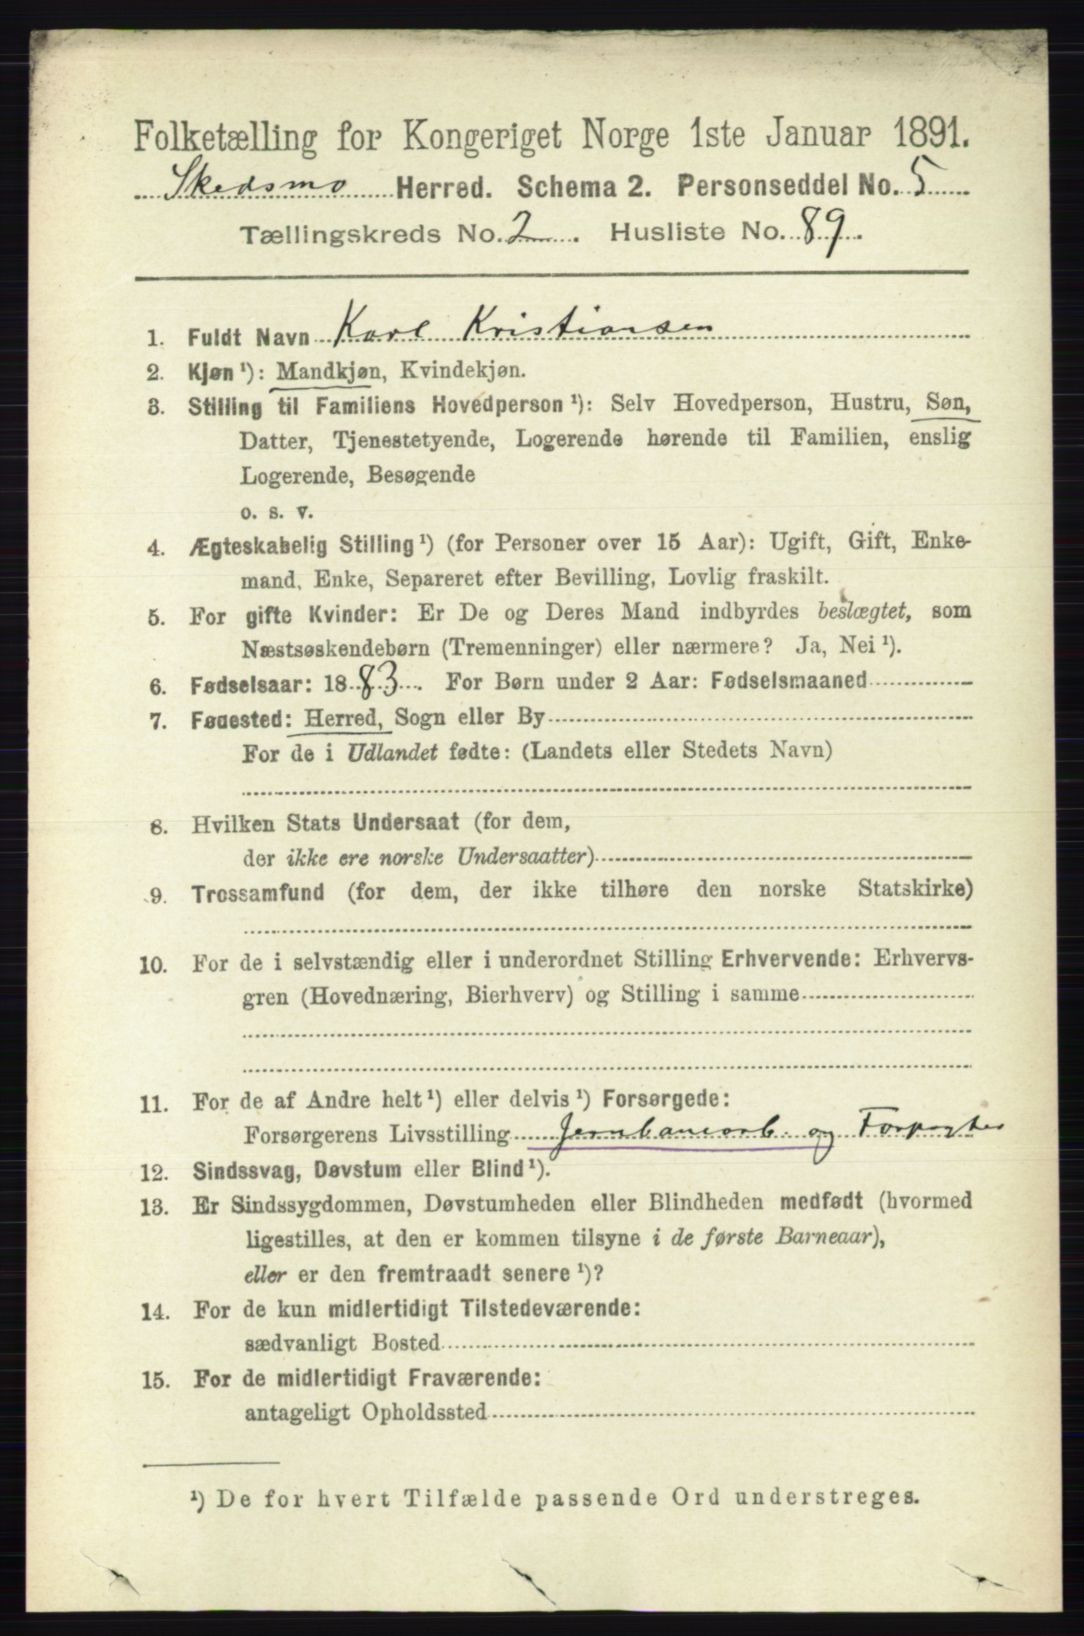 Folketælling for Kongeriget Norge 1ste Januar 1891.
Skedsmo Herred. Schema 2. Personseddel No. 5
Tællingskreds No. 2. Husliste No. 89.
1. Fuldt Navn Karl Kristiansen
2. Kjøn ¹): Mandkjøn, Kvindekjøn.
3. Stilling til Familiens Hovedperson ¹): Selv Hovedperson, Hustru, Søn,
Datter, Tjenestetyende, Logerende hørende til Familien, enslig
Logerende, Besøgende
o. s. v.
4. Ægteskabelig Stilling ¹) (for Personer over 15 Aar): Ugift, Gift, Enke-
mand, Enke, Separeret efter Bevilling, Lovlig fraskilt.
5. For gifte Kvinder: Er De og Deres Mand indbyrdes beslægtet, som
Næstsøskendebørn (Tremenninger) eller nærmere? Ja, Nei ¹).
6. Fødselsaar: 1883. For Børn under 2 Aar: Fødselsmaaned
7. Fødested: Herred, Sogn eller By
For de i Udlandet fødte: (Landets eller Stedets Navn)
8. Hvilken Stats Undersaat (for dem,
der ikke ere norske Undersaatter)
9. Trossamfund (for dem, der ikke tilhøre den norske Statskirke)
10. For de i selvstændig eller i underordnet Stilling Erhvervende: Erhvervs-
gren (Hovednæring, Bierhverv) og Stilling i samme
11. For de af Andre helt ¹) eller delvis ¹) Forsørgede:
Forsørgerens Livsstilling Jernbanearb. og Forpagter
12. Sindssvag, Døvstum eller Blind ¹).
13. Er Sindssygdommen, Døvstumheden eller Blindheden medfødt (hvormed
ligestilles, at den er kommen tilsyne i de første Barneaar),
eller er den fremtraadt senere ¹)?
14. For de kun midlertidigt Tilstedeværende:
sædvanligt Bosted
15. For de midlertidigt Fraværende:
antageligt Opholdssted
¹) De for hvert Tilfælde passende Ord understreges.